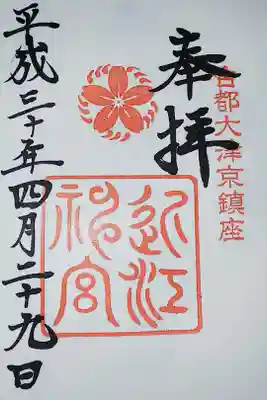 奉拝
古都大津京鎮座
近江神宮
平成三十年四月二十九日